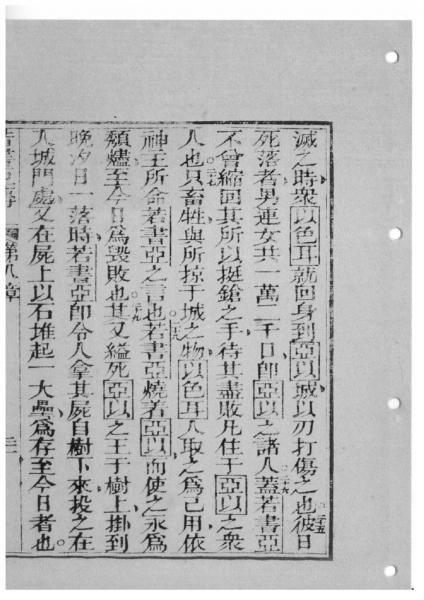 滅之時衆以色耳就回身到亞以城以刃打傷之也。二十五彼日
死落者男連女共一萬二千口卽亞以之諸人。二十六蓋若書亞
不曾縮回其所以挺鎗之手待其盡敗凡住于亞以之衆
人也。二十七只畜牲與所掠于城之物以色耳人取之爲己用依
神王所命若書亞之言也。二十八若書亞燒著亞以而使之永爲
頽燼至今日爲毀敗也。二十九其又縊死亞以之王于樹上掛到
晚夕日一落時若書亞卽令人拿其屍自樹下來投之在
入城門處又在屍上以石堆起一大壘爲存至今日者也。
第八章